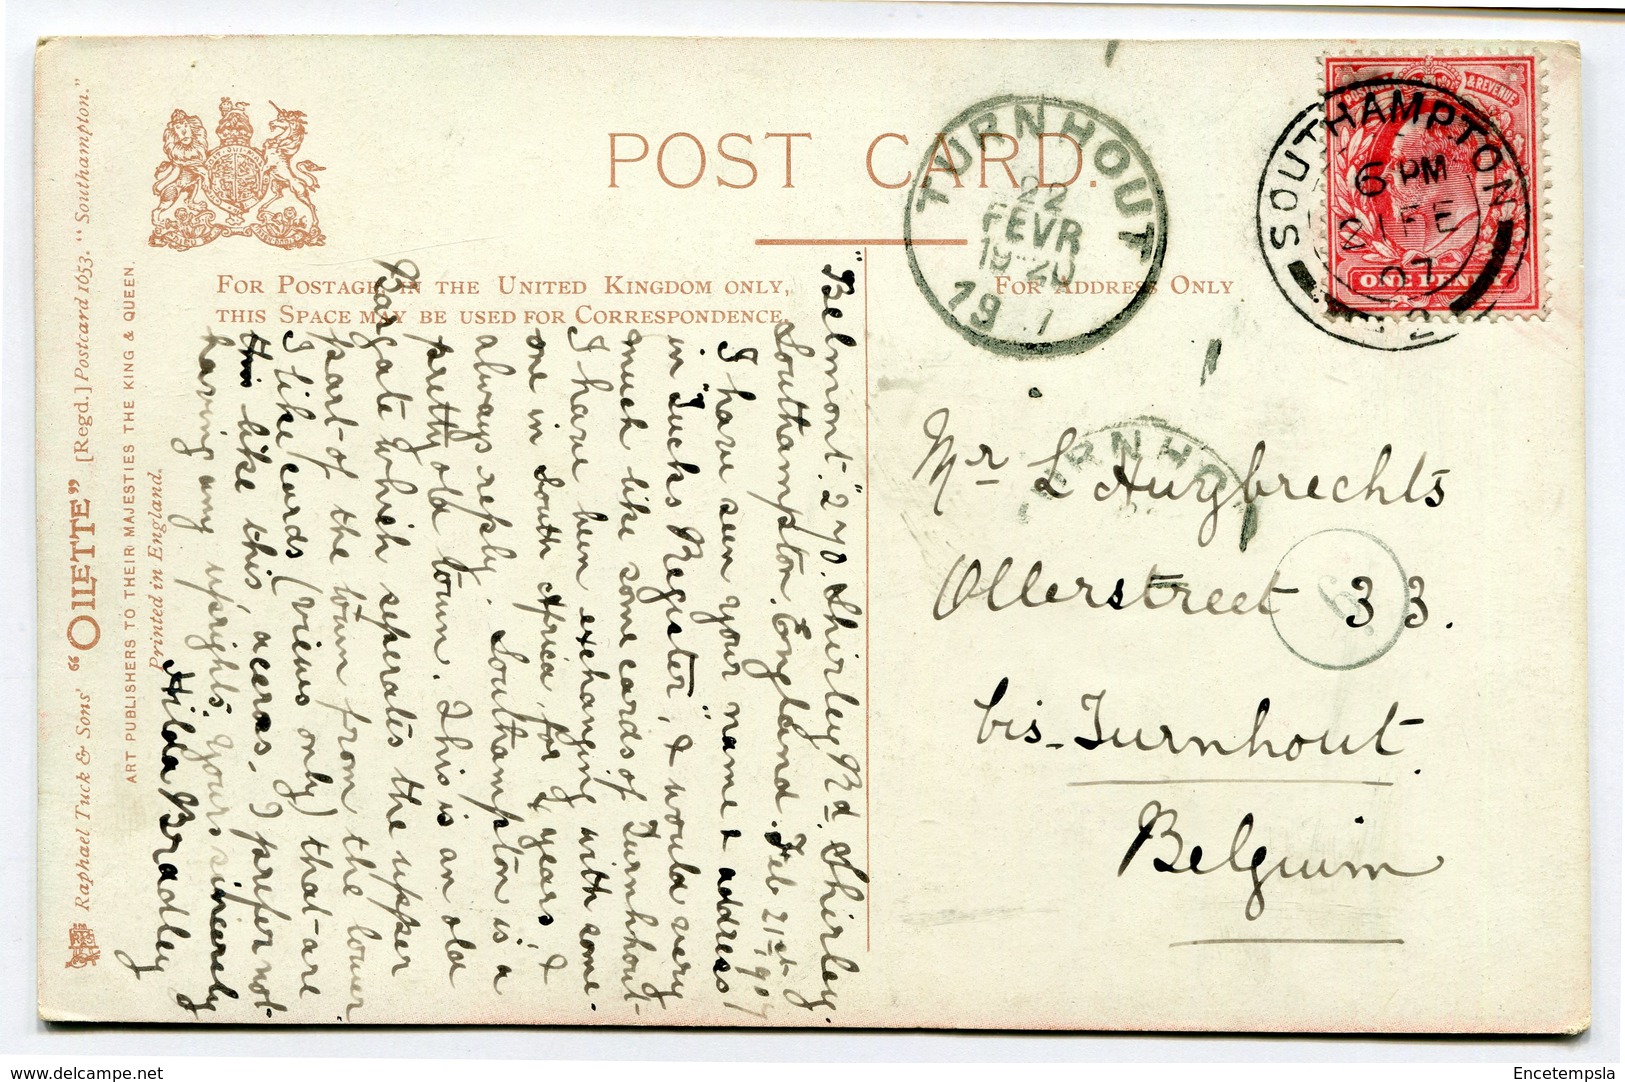 Raphael Tuck & Sons' "OILETTE" [Regd.] Postcard 1653. "Southampton."
ART PUBLISHERS TO THEIR MAJESTIES THE KING & QUEEN.
Printed in England.
POST CARD.
FOR POSTAGE IN THE UNITED KINGDOM ONLY,
THIS SPACE MAY BE USED FOR CORRESPONDENCE.
FOR ADDRESS ONLY
TURNHOUT
22
FEVR
19-20
19 7
POSTAGE & REVENUE
ONE PENNY
SOUTHAMPTON
6 PM
21 FE
07
2
TURNHOUT
"Belmont" 270. Shirley Rd. Shirley.
Southampton. England. Feb 21st 1907
I have seen your name & address
in "Tucks Register", & would very
much like some cards of Turnhout-
I have been exchanging with some-
one in South Africa for 2 years, &
always reply. Southampton is a
pretty old town. This is an old
Bargate which seperates the upper
part-of the town from the lower.
I like cards (views only) that-are
like this, across. I prefer not-
having any "uprights". Yours sincerely
Hilda Bradley
Mr L Huybrechts
Ollerstreet 33.
bis-Turnhout.
Belgium
delcampe.net
Encetempsla